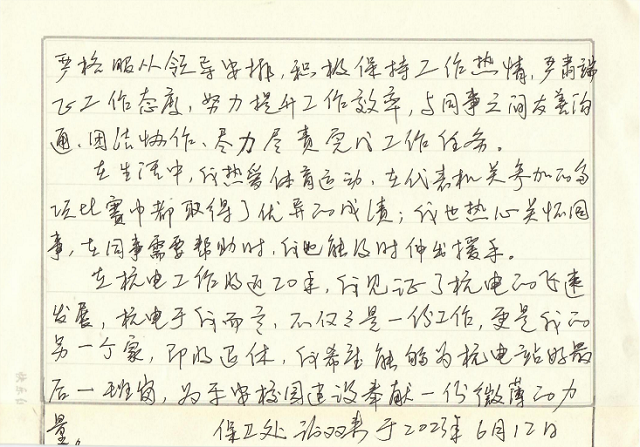 严格服从领导安排，积极保持工作热情，严肃端
正工作态度，努力提升工作效率，与同事之间友善沟
通、团结协作、尽力尽责完成工作任务。
在生活中，我热爱体育运动，在代表机关参加的多
项比赛中都取得了优异的成绩；我也热心关怀同
事，在同事需要帮助时，我也能及时伸出援手。
在杭电工作将近20年，我见证了杭电的飞速
发展，杭电于我而言，不仅仅是一份工作，更是我的
另一个家，即将退休，我希望能够为杭电站好最
后一班岗，为平安校园建设奉献一份微薄的力
量。
保卫处 于2023年6月12日